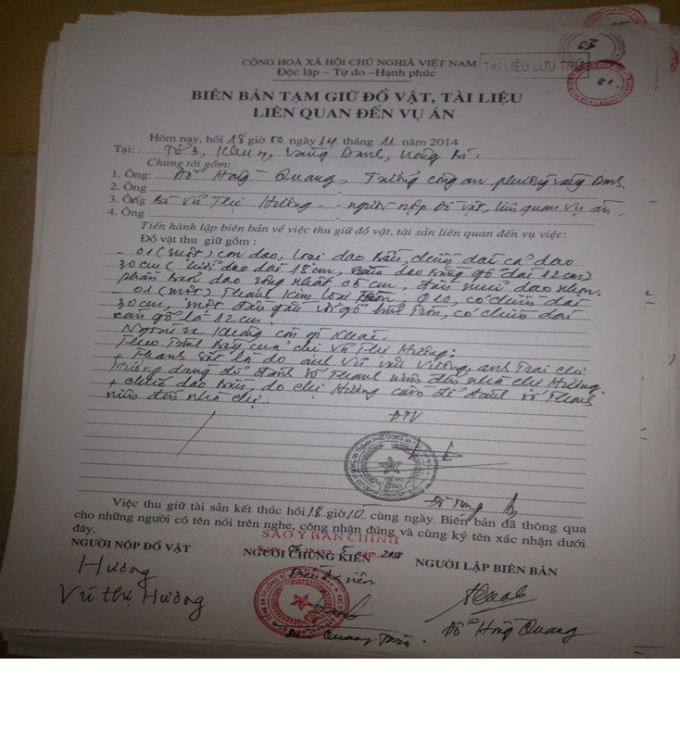 CỘNG HOÀ XÃ HỘI CHỦ NGHĨA VIỆT NAM
TÀI LIỆU LƯU TRỮ
Độc lập – Tự do –Hạnh phúc
BIÊN BẢN TẠM GIỮ ĐỒ VẬT, TÀI LIỆU
LIÊN QUAN ĐẾN VỤ ÁN
Hôm nay, hồi 18 giờ 00 ngày 14 tháng 11 năm 2014
Tại: Tổ 3, Khu Vàng Danh, Uông Bí.
Chúng tôi gồm:
1. Ông: Đỗ Hồng Quang, Trưởng công an phường Vàng Danh.
2. Ông
3. Ông Bà Vũ Thị Hường - người nộp đồ vật, liên quan vụ án.
4. Ông
Tiến hành lập biên bản về việc thu giữ đồ vật, tài sản liên quan đến vụ việc:
Đồ vật thu giữ gồm:
- 01 (một) con dao, loại dao bầu, chiều dài cả dao
30cm ( lưỡi dao dài 18cm, dao bằng gỗ dài 12cm)
phần bản dao rộng nhất 0,6 cm, đầu mũi dao nhọn.
- 01 (một) thanh kim loại, có chiều dài
30cm, một đầu gắn với gỗ hình tròn, có chiều dài
cán gỗ là 12cm.
Ngoài ra không còn gì khác.
Theo trình bày của chị Vũ Thị Hường:
+ Thanh sắt là do anh Vũ Văn Vường, anh trai chị
Hường dùng để đánh số thanh niên đến nhà chị Hường.
+ chiếc dao bầu, do chị Hường cầm để đánh số thanh
niên đến nhà chị.
ĐTV
Việc thu giữ tài sản kết thúc hồi 18 giờ 10 cùng ngày. Biên bản đã thông qua
cho những người có tên nói trên nghe, công nhận đúng và cùng ký tên xác nhận dưới
đây.
SAO Y BẢN CHÍNH
NGƯỜI NỘP ĐỒ VẬT
NGƯỜI CHỨNG KIẾN
NGƯỜI LẬP BIÊN BẢN
Hường
Vũ Thị Hường
Điều tra viên
Quang
Đỗ Hồng Quang